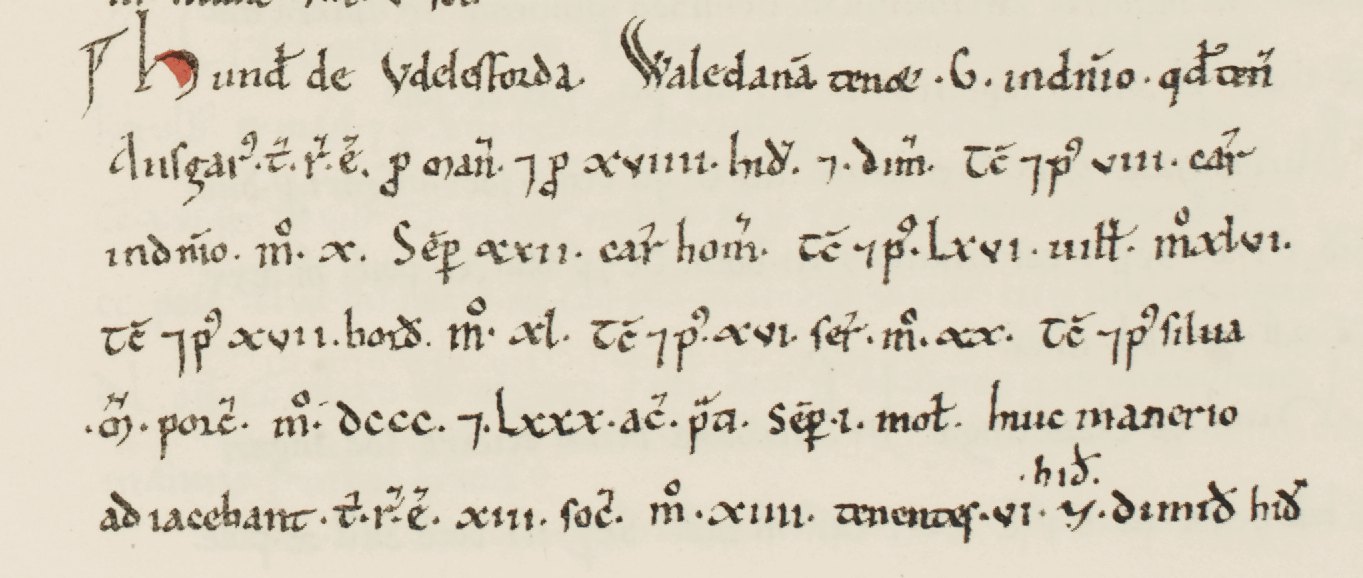 Hund̄ de Vdelesforda. Waledanā tenet .G. in dn̄io. qđ teñ
Ansgarꝰ. t̄. r̄. ē. ꝓ Mañ. ⁊ ꝓ xviiii. hid̄. ⁊. dim̄. Tc̄ ⁊ pꝰ viii. car̄
in dn̄io. m̊. x. Sēꝑ xxii. car̄ hom̄. Tc̄ ⁊ pꝰ. Lxvi. uilł. m̊ xlvi.
Tc̄ ⁊ pꝰ xvii. bord̄. m̊. xl. Tc̄ ⁊ pꝰ. xvi. ser̄. m̊. xx. Tc̄ ⁊ pꝰ silua
.m̄. porc̄. m̊. dccc. ⁊. Lxxx. ac̄. p̄ti. Sēꝑ. i. mol̄. huic manerio
.hid̄.
adiacebant. t̄. r̄. ē. xiii. soc̄. m̊. xiiii. tenentes. vi. ⁊. dimid̄ hid̄